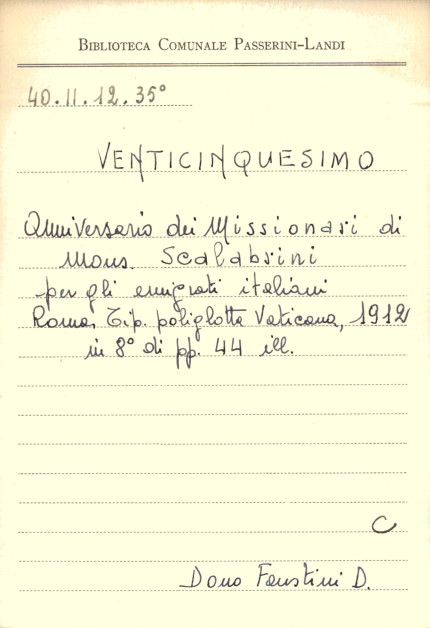 BIBLIOTECA COMUNALE PASSERINI-LANDI
40.II.12.35°
VENTICINQUESIMO
Anniversario dei Missionari di
Mons. Scalabrini
per gli emigrati italiani
Roma, Tip. poliglotta Vaticana, 1912
in 8° di pp. 44 ill.
C
Dono Faustini D.